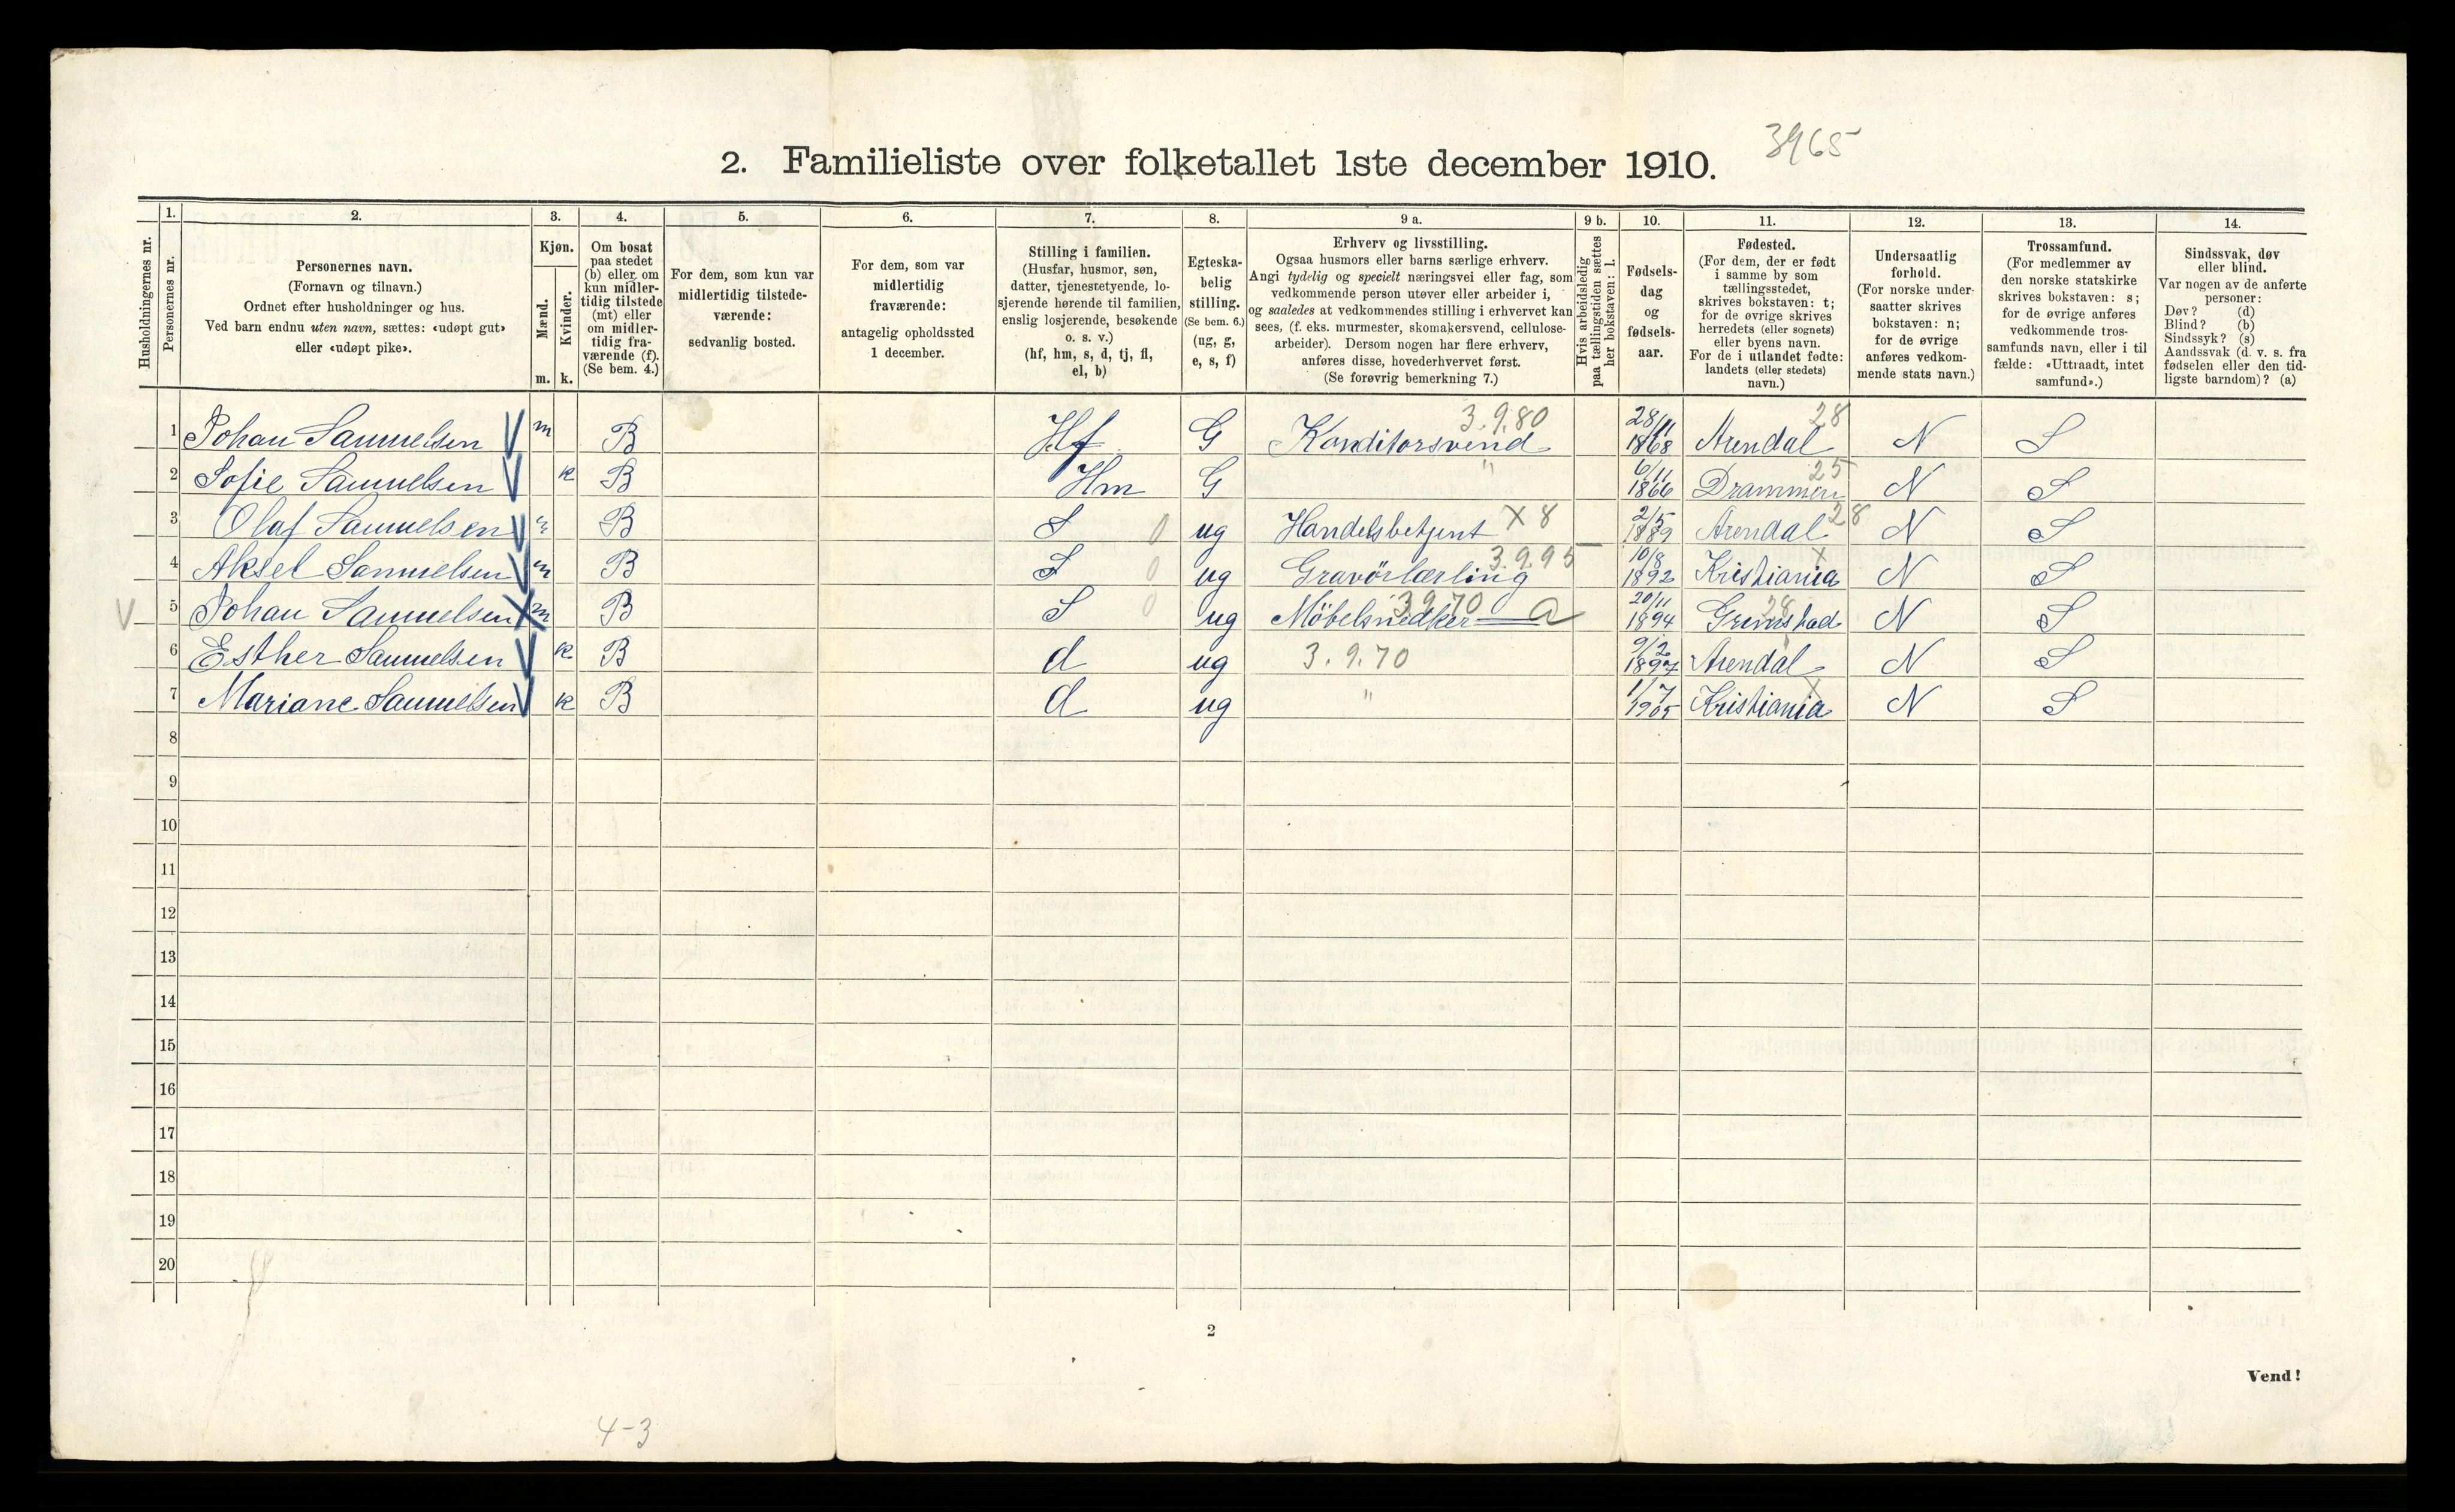 3965
2. Familieliste over folketallet 1ste december 1910.
Husholdningernes nr.
1. Personernes nr.
2. Personernes navn.
(Fornavn og tilnavn.)
Ordnet efter husholdninger og hus.
Ved barn endnu uten navn, sættes: «udøpt gut»
eller «udøpt pike».
3. Kjøn.
Mænd. m.
Kvinder. k.
4. Om bosat
paa stedet
(b) eller om
kun midler-
tidig tilstede
(mt) eller
om midler-
tidig fra-
værende (f).
(Se bem. 4.)
5. For dem, som kun var
midlertidig tilstede-
værende:
sedvanlig bosted.
6. For dem, som var
midlertidig
fraværende:
antagelig opholdssted
1 december.
7. Stilling i familien.
(Husfar, husmor, søn,
datter, tjenestetyende, lo-
sjerende hørende til familien,
enslig losjerende, besøkende
o. s. v.)
(hf, hm, s, d, tj, fl,
el, b)
8. Egteska-
belig
stilling.
(Se bem. 6.)
(ug, g,
e, s, f)
9 a. Erhverv og livsstilling.
Ogsaa husmors eller barns særlige erhverv.
Angi tydelig og specielt næringsvei eller fag, som
vedkommende person utøver eller arbeider i,
og saaledes at vedkommendes stilling i erhvervet kan
sees, (f. eks. murmester, skomakersvend, cellulose-
arbeider). Dersom nogen har flere erhverv,
anføres disse, hovederhvervet først.
(Se forøvrig bemerkning 7.)
9 b. Hvis arbeidsledig
paa tællingstiden sættes
her bokstaven: l.
10. Fødsels-
dag
og
fødsels-
aar.
11. Fødested.
(For dem, der er født
i samme by som
tællingsstedet,
skrives bokstaven: t;
for de øvrige skrives
herredets (eller sognets)
eller byens navn.
For de i utlandet fødte:
landets (eller stedets)
navn.)
12. Undersaatlig
forhold.
(For norske under-
saatter skrives
bokstaven: n;
for de øvrige
anføres vedkom-
mende stats navn.)
13. Trossamfund.
(For medlemmer av
den norske statskirke
skrives bokstaven: s;
for de øvrige anføres
vedkommende tros-
samfunds navn, eller i til
fælde: «Uttraadt, intet
samfund».)
14. Sindssvak, døv
eller blind.
Var nogen av de anførte
personer:
Døv? (d)
Blind? (b)
Sindssyk? (s)
Aandssvak (d. v. s. fra
fødselen eller den tid-
ligste barndom)? (a)
1 Johan Samuelsen V m B Hf G Konditorsvend 3.9.80 28/11 1868 Arendal 28 N S
2 Sofie Samuelsen V k B Hm G " 6/11 1866 Drammen 25 N S
3 Olaf Samuelsen V m B S 0 ug Handelsbetjent X 8 2/5 1889 Arendal 28 N S
4 Aksel Samuelsen V m B S 0 ug Gravörlærling 3.9.95 10/8 1892 Kristiania X N S
V 5 Johan Samuelsen X m B S 0 ug Möbelsnedker 3.9.70 a 20/11 1894 Grimstad 28 N S
6 Esther Samuelsen V k B d ug 3.9.70 9/2 1897 Arendal N S
7 Mariane Samuelsen V k B d ug " 1/7 1905 Kristiania X N S
8
9
10
11
12
13
14
15
16
17
18
19
20
2
Vend!
4-3